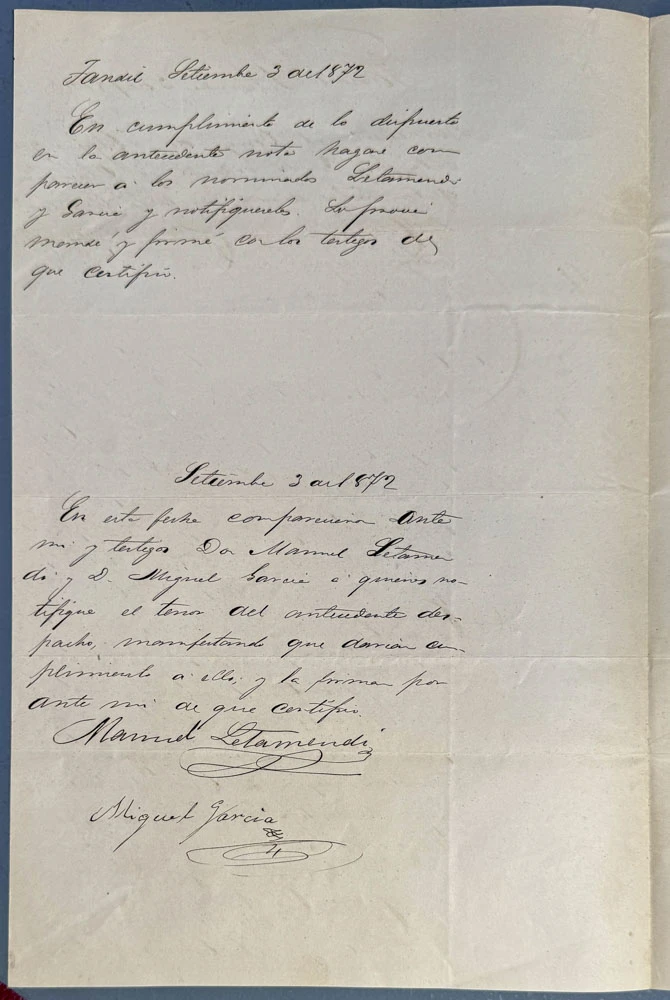 Tandil Setiembre 3 de 1872
En cumplimiento de lo dispuesto
en la antecedente nota hagase com
parecer a los nominados Letamendi
y Garcia y notifiquereles. Lo provei
mandé y firmé con los testigos de
que certifico.
Setiembre 3 de 1872
En esta fecha comparecieron ante
mi y testigos Don Manuel Letamen
di y D. Miguel Garcia a quienes no-
tifique el tenor del antecedente des-
pacho, manifestando que darian cu-
plimiento a ello; y la firman por
ante mi de que certifico.
Manuel Letamendi
Miguel Garcia